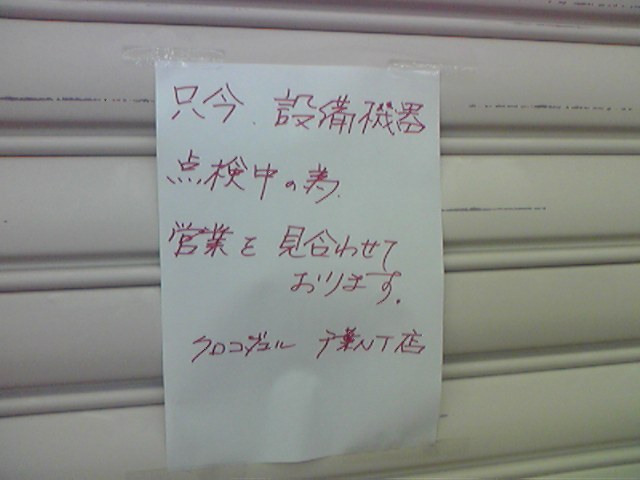 只今、設備機器
点検中の為、
営業を見合わせて
おります。
クロコジュール 千葉NT店